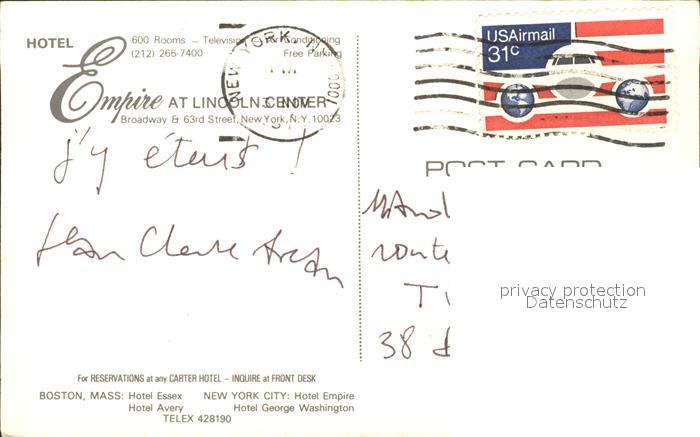 HOTEL
Empire AT LINCOLN CENTER
600 Rooms — Television Air Conditioning
(212) 265-7400 Free Parking
Broadway & 63rd Street, New York, N.Y. 10023
NEW YORK N
PM
NOV
1000
USAirmail
31c
POST CARD
j'y étais !
Jean Claude
route
T
38
privacy protection
Datenschutz
For RESERVATIONS at any CARTER HOTEL – INQUIRE at FRONT DESK
BOSTON, MASS: Hotel Essex NEW YORK CITY: Hotel Empire
Hotel Avery Hotel George Washington
TELEX 428190